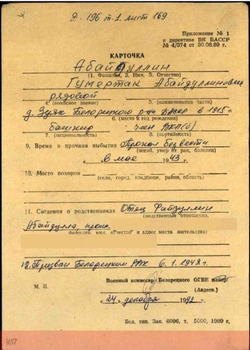 Д. 196 т. 1 лист 169
Приложение № 1
к директиве ВК БАССР
№ 4/074 от 30.08.89 г.
КАРТОЧКА
Абайдуллин
(1. Фамилия, 2. Имя, 3. Отчество)
Абайдуллинович
рядовой
(4. воинское звание) (5. наименование части)
д. Зуяк Белорецкого р-на БАССР в 1915 г.
(6. место и год рождения)
башкир член ВКП(б)
(7. национальность) (8. партийность)
9. Время и причина выбытия Пропал без вести
(погиб, умер от ран, болезни)
в мае 1943 г.
10. Место похорон
(село, город, кладбище, район, область)
11. Сведения о родственниках Отец Файзуллин
(родственные отношения,
Абайдулла,
фамилия, имя, отчество и адрес места жительства)
Призван Белорецким РВК 6.1.1942 г.
М. П.
Военный комиссар Белорецкого ОГВК
(Авдеев)
24 декабря 1991 г.
Бел. тип. Зак. 8096, т. 5000, 1989 г.